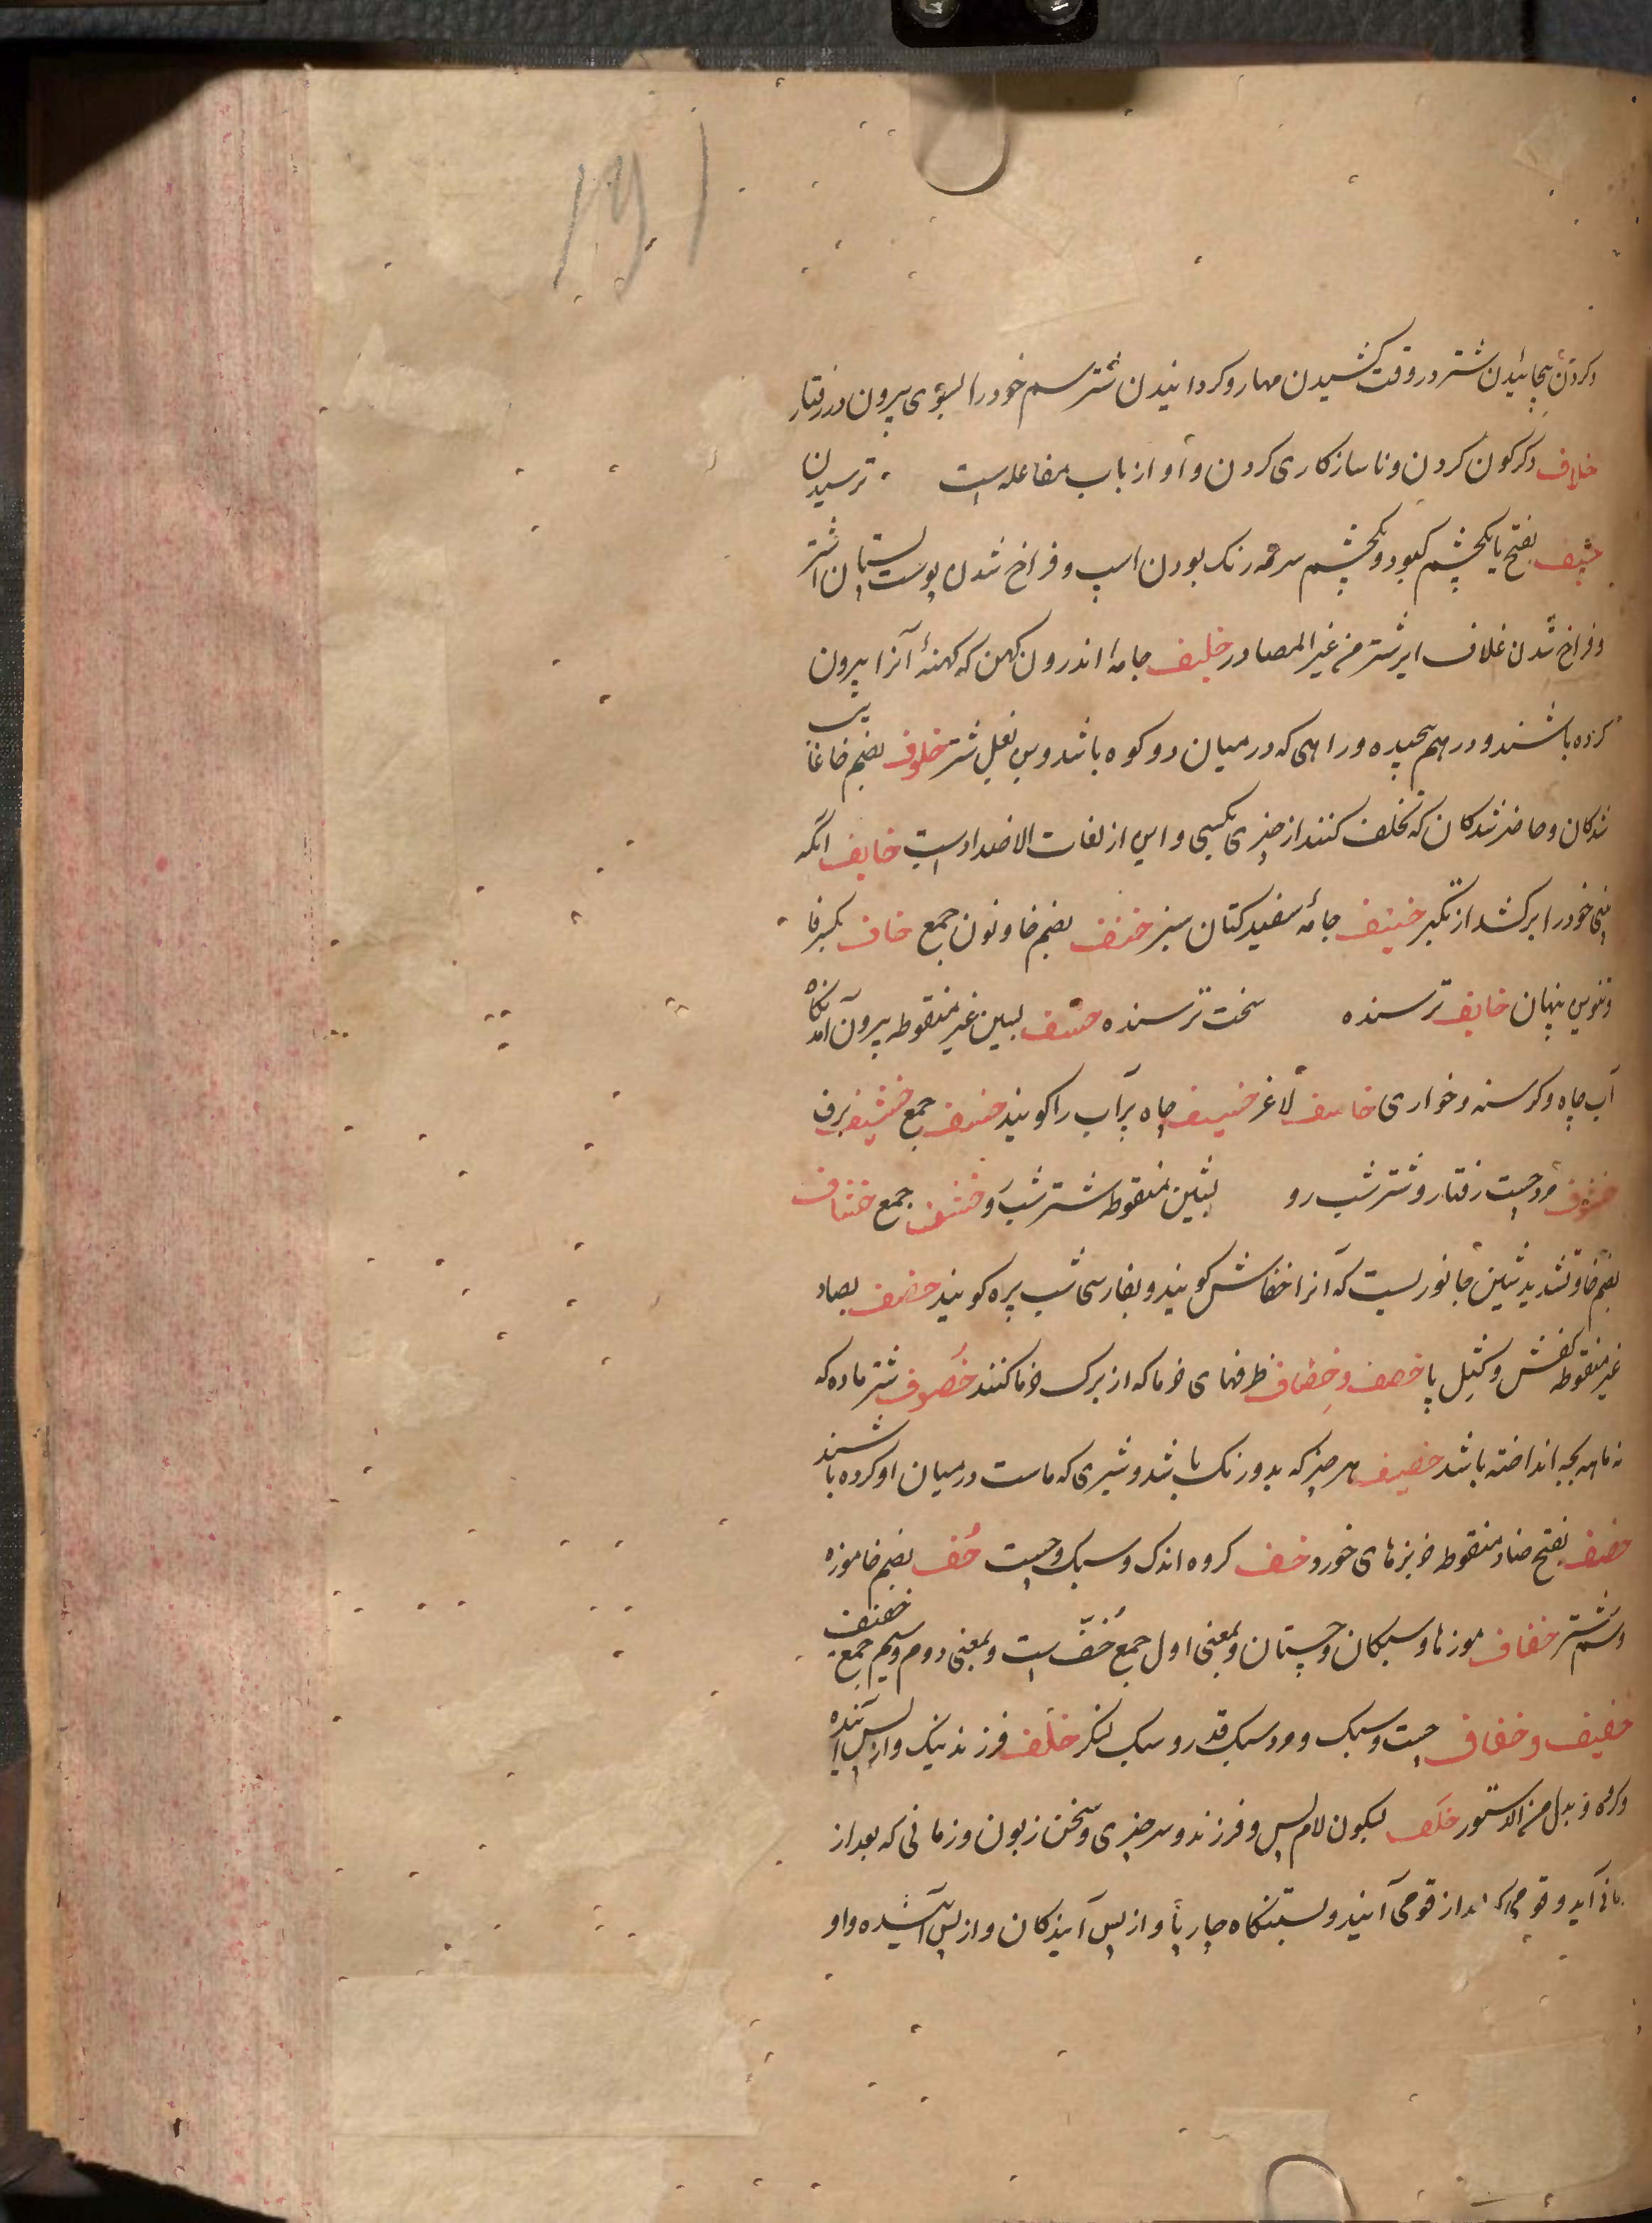 ۱۹۱
و کردن پیچانیدن شتر در وقت کشیدن مهار و کردانیدن شتر سم خود را بسوی بیرون در رفتار
خلاف دکرکون کردن و ناسازکاری کردن و او از باب مفاعله است ترسیدن
خیف بفتح یا یکچشم کبود و یکچشم سرمه رنک بودن اسپ و فراخ شدن پوست پستان اشتر
و فراخ شدن غلاف ایر شتر من غیر المصادر خلیف جامهٔ اندرون کهن که کهنهٔ آنرا بیرون
کرده باشند و درهم پیچیده و راهی که در میان دو کوه باشد و بن بغل شتر خلوف بضم خا غایب
شدکان و حاضر شدکان که تخلف کنند از چیزی بکسی و این از لغات الاضداد است خایف انکه
بینی خود را برکشد از تکبر خنیف جامهٔ سفید کتان سبز خنف بضم خا و نون جمع خاف بکسر فا
و تنوین پنهان خایف ترسنده سخت ترسنده خسف بسین غیر منقوطه بیرون آمدنکاه
آب چاه و کرسنه و خواری خاسف لاغر خسیف چاه پر آب را کویند خسف جمع خشیف برف
خشوف مرد چست رفتار و شتر شب رو بشین منقوطه شتر شب رو خشف جمع خشاف
بضم خا و تشدید شین جانوریست که آنرا خفاش کویند و بفارسی شب پره کویند خصف بصاد
غیر منقوطه کفش و کثیل پا خصف و خصاف ظرفهای خرما که از برک خرما کنند خصوف شتر ماده که
نه ماهه بچه انداخته باشد خصیف هر چیز که بدو رنک باشد و شیری که ماست در میان او کرده باشند
خضف بفتح ضاد منقوطه خربزهای خورد خف کروه اندک و سبک و چست خف بضم خا موزه
و سم شتر خفاف موزها و سبکان و چستان و بمعنی اول جمع خف است و بمعنی دوم و سیم جمع خفیف
خفیف و خفاف چست و سبک و مرد سبک قدر و سبک لنکر خلف فرزند نیک و از پس آینده
و کروه و بدل من الدستور خلف بسکون لام پس و فرزند و سر چیزی و سخن زبون و زمانی که بعد از
زمانی آید و قومی که بعد از قومی آیند و بستنکاه چارپا و از پس آیندکان و از پس آب کشیده و او